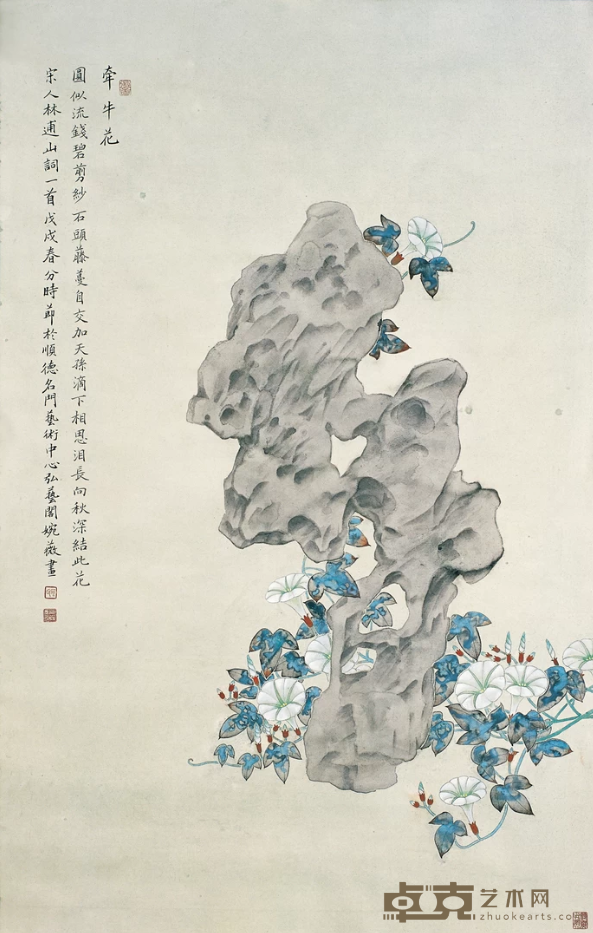 牽牛花
圓似流錢碧剪紗石頭藤蔓自交加天孫滴下相思泪長向秋深結此花
宋人林逋山詞一首戊戌春分時節於順德名門藝術中心弘藝閣婉薇畫
卓克艺术网
zhuokearts.com